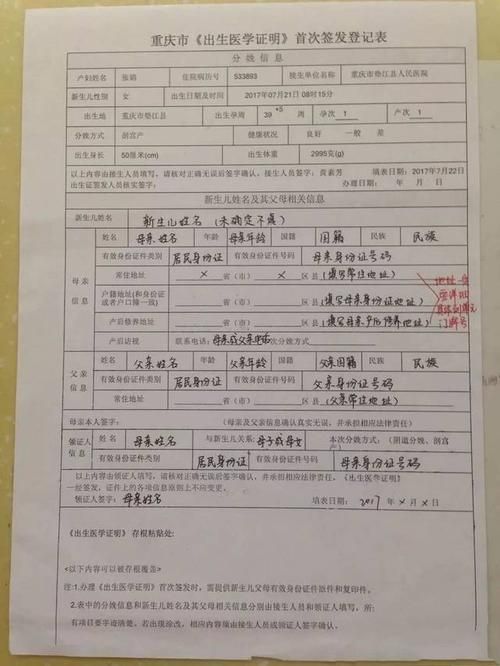 重庆市《出生医学证明》首次签发登记表
分娩信息
产妇姓名 张娟 住院病历号 533893 接生单位名称 重庆市垫江县人民医院
新生儿性别 女 出生日期及时间 2017年07月21日 08时15分
出生地 重庆市垫江县 出生孕周 39 +5 周 孕次 1 产次 1
分娩方式 剖宫产 健康状况 良好 一般 差
出生身长 50厘米(cm) 出生体重 2995克(g)
以上内容由接生人员填写，请核对正确无误后签字确认。接生人员签字：黄素芳 填表日期：2017年7月22日
出生证签发人员核实签字： 办理日期： 年 月 日
新生儿姓名及其父母相关信息
新生儿姓名 新生儿姓名 (未确定不填)
母亲信息
姓名 母亲姓名 年龄 母亲年龄 国籍 国籍 民族 民族
有效身份证件类别 居民身份证 有效身份证件号码 母亲身份证号码
常住地 × 省（市） × 区县 (填写常住地址)
户籍地(和身份证或者户口簿一致) 省（市） 区县 (填写母亲身份证地址)
产后修养地址 省（市） 区县 (填写母亲产后修养地址)
地址一定
要详细
具体到单元
门牌号
产后访视 联系电话：母亲或父亲电话 次分娩方式：
父亲信息
姓名 父亲姓名 年龄 父亲年龄 国籍 父亲国籍 民族 民族
有效身份证件类别 居民身份证 有效身份证件号码 父亲身份证号码
常住地 省（市） 区县 (父亲常住地址)
母亲本人签字： (母亲及父亲信息确认真实无误，并承担相应法律责任)
领证人信息
姓名 母亲姓名 与新生儿关系：母子或母女 本次分娩方式：（阴道分娩、剖宫产）
有效身份证件类别 居民身份证 有效身份证件号码 母亲身份证号码
以上内容由领证人填写，请核对正确无误后签字确认，并承担相应法律责任。《出生医学证明》
一经签发，证件上的各项信息原则上不应变更。
领证人签字：母亲姓名 填表日期：2017年×月×日
《出生医学证明》存根粘贴处：
<以下内容可以被存根覆盖>
注:1.办理《出生医学证明》首次签发时，需提供新生儿父母有效身份证件原件和复印件。
2.表中的分娩信息和新生儿姓名及其父母相关信息分别由接生人员和领证人填写，所
有项目要字迹清楚。若出现涂改，相应内容须由接生人员或领证人签字确认。